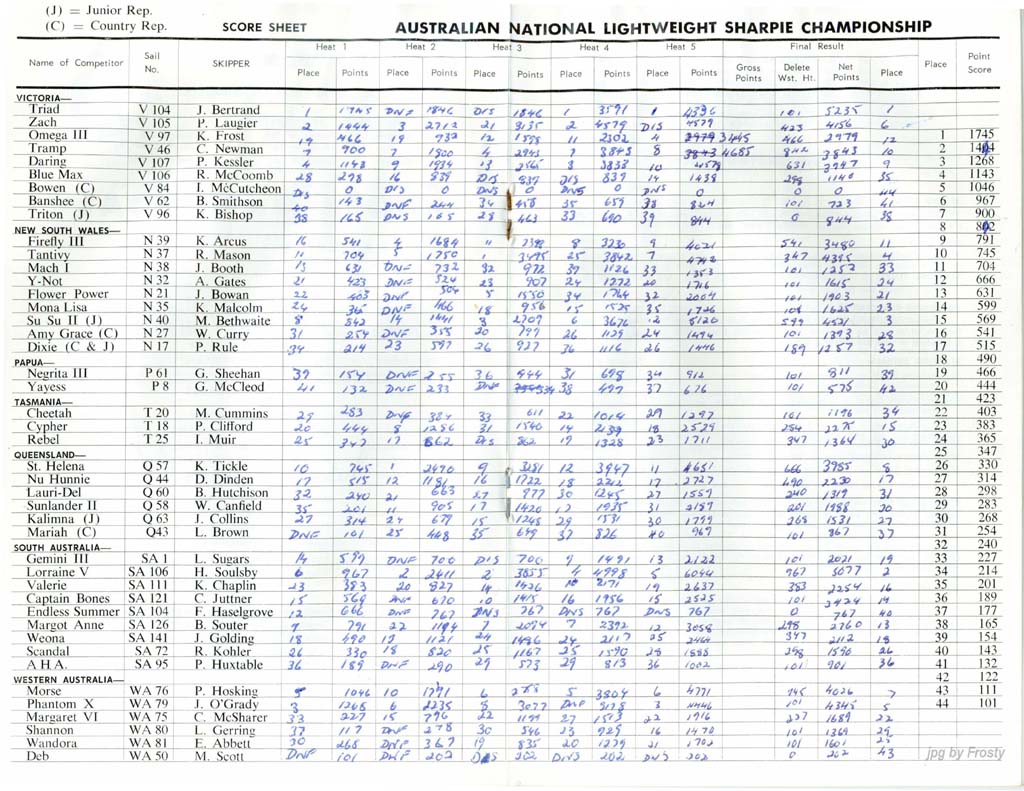 (J) = Junior Rep.
(C) = Country Rep.
SCORE SHEET AUSTRALIAN NATIONAL LIGHTWEIGHT SHARPIE CHAMPIONSHIP
Heat 1 Heat 2 Heat 3 Heat 4 Heat 5 Final Result
Name of Competitor Sail No. SKIPPER Place Points Place Points Place Points Place Points Place Points Gross Points Delete Wst. Ht. Net Points Place Place Point Score
VICTORIA—
Triad V 104 J. Bertrand 1 1745 DNF 1846 DIS 1846 1 3591 1 5336 101 5235 1
Zach V 105 P. Laugier 2 1444 3 2712 21 3135 2 4579 DIS 4579 423 4156 6
Omega III V 97 K. Frost 19 466 19 932 12 1598 11 2302 4 3445 466 2979 12 1 1745
Tramp V 46 C. Newman 7 900 7 1800 4 2943 7 3843 8 4685 842 3843 10 2
Daring V 107 P. Kessler 4 1143 9 1934 13 2565 3 3833 10 4578 631 3947 9 3 1268
Blue Max V 106 R. McComb 28 298 16 839 DIS 839 DIS 839 14 1438 298 1140 35 4 1143
Bowen (C) V 84 I. McCutcheon DIS 0 DIS 0 DNS 0 DNS 0 DNS 0 0 0 44 5 1046
Banshee (C) V 62 B. Smithson 40 143 DNF 244 34 458 35 659 38 824 101 723 41 6 967
Triton (J) V 96 K. Bishop 38 165 DNS 165 28 463 33 690 39 844 0 844 38 7 900
NEW SOUTH WALES— 8
Firefly III N 39 K. Arcus 16 541 4 1684 11 2388 8 3230 9 4021 541 3480 11 9 791
Tantivy N 37 R. Mason 11 704 5 1750 1 3495 25 3842 7 4742 347 4395 4 10 745
Mach I N 38 J. Booth 13 631 DNF 732 32 972 37 1126 33 1353 101 1252 33 11 704
Y-Not N 32 A. Gates 21 423 DNF 524 23 907 24 1272 20 1716 101 1615 24 12 666
Flower Power N 21 J. Bowan 22 403 DNF 504 5 1550 34 1764 32 2004 101 1903 21 13 631
Mona Lisa N 35 K. Malcolm 24 365 DNF 466 18 956 15 1525 35 1726 101 1625 23 14 599
Su Su II (J) N 40 M. Bethwaite 8 842 14 1441 3 2709 6 3676 2 5120 599 4521 3 15 569
Amy Grace (C) N 27 W. Curry 31 254 DNF 355 20 799 26 1129 24 1494 101 1393 28 16 541
Dixie (C & J) N 17 P. Rule 34 214 23 597 26 927 36 1116 26 1446 189 1257 32 17 515
PAPUA— 18 490
Negrita III P 61 G. Sheehan 39 154 DNF 255 36 444 31 698 34 912 101 811 39 19 466
Yayess P 8 G. McCleod 41 132 DNF 233 DNF 334 38 499 37 676 101 575 42 20 444
TASMANIA— 21 423
Cheetah T 20 M. Cummins 29 283 DNF 384 33 611 22 1014 29 1297 101 1196 34 22 403
Cypher T 18 P. Clifford 20 444 8 1286 31 1540 14 2139 18 2529 254 2275 15 23 383
Rebel T 25 I. Muir 25 347 17 862 DIS 862 19 1328 23 1711 347 1364 30 24 365
QUEENSLAND— 25 347
St. Helena Q 57 K. Tickle 10 745 1 2490 9 3281 12 3947 11 4651 666 3985 8 26 330
Nu Hunnie Q 44 D. Dinden 17 515 12 1181 16 1722 18 2212 17 2727 490 2230 17 27 314
Lauri-Del Q 60 B. Hutchison 32 240 21 663 27 977 30 1245 27 1559 240 1319 31 28 298
Sunlander II Q 58 W. Canfield 35 201 11 905 17 1420 17 1935 31 2189 201 1988 20 29 283
Kalimna (J) Q 63 J. Collins 27 314 24 679 15 1248 29 1531 30 1799 268 1531 27 30 268
Mariah (C) Q43 L. Brown DNF 101 25 448 35 649 37 826 40 969 101 867 37 31 254
SOUTH AUSTRALIA— 32 240
Gemini III SA 1 L. Sugars 14 599 DNF 700 DIS 700 9 1491 13 2122 101 2021 19 33 227
Lorraine V SA 106 H. Soulsby 6 967 2 2411 2 3855 4 4998 5 6044 967 5077 2 34 214
Valerie SA 111 K. Chaplin 23 383 20 827 14 1426 10 2171 19 2637 383 2254 16 35 201
Captain Bones SA 121 C. Juttner 15 569 DNF 670 10 1415 16 1956 15 2525 101 2424 14 36 189
Endless Summer SA 104 F. Haselgrove 12 666 DNF 767 DNS 767 DNS 767 DNS 767 0 767 40 37 177
Margot Anne SA 126 B. Souter 9 791 22 1194 7 2094 28 2392 12 3058 298 2760 13 38 165
Weona SA 141 J. Golding 18 490 13 1121 24 1486 24 2117 25 2464 347 2112 18 39 154
Scandal SA 72 R. Kohler 26 330 18 820 25 1167 25 1590 28 1888 298 1590 26 40 143
A H A. SA 95 P. Huxtable 36 189 DNF 290 29 573 29 813 36 1002 101 901 36 41 132
WESTERN AUSTRALIA— 42 122
Morse WA 76 P. Hosking 5 1046 10 1791 6 2758 5 3804 6 4771 745 4026 7 43 111
Phantom X WA 79 J. O'Grady 3 1268 6 2235 8 3077 DNF 3178 3 4446 101 4345 5 44 101
Margaret VI WA 75 C. McSharer 33 227 15 796 22 1199 27 1513 22 1916 227 1689 22
Shannon WA 80 L. Gerring 37 117 DNF 278 30 546 23 929 16 1470 101 1369 29
Wandora WA 81 E. Abbett 30 268 DNF 369 19 835 20 1279 21 1702 101 1601 25
Deb WA 50 M. Scott DNF 101 DNF 202 DNS 202 DNS 202 DNS 202 0 202 43
jpg by Frosty